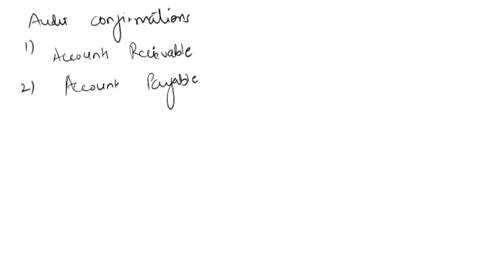 Audit confirmations
1) Account Recievable
2) Account Payable